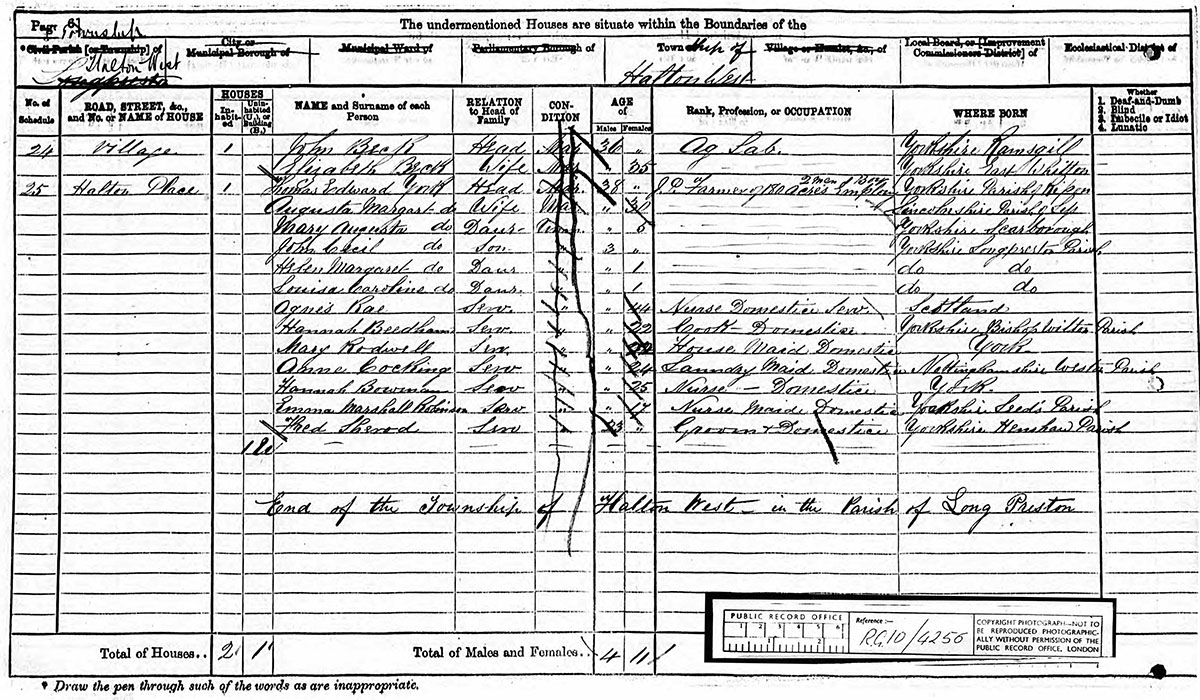 Page 6] The undermentioned Houses are situate within the Boundaries of the
Township
* Civil Parish [or Township] of City or Municipal Borough of Municipal Ward of Parliamentary Borough of Town ship of Village or Hamlet, &c., of Local Board, or [Improvement Commissioners District] of Ecclesiastical District of
Halton West Halton West
No. of Schedule ROAD, STREET, &c., and No. or NAME of HOUSE HOUSES Inhabited Uninhabited (U.), or Building (B.) NAME and Surname of each Person RELATION to Head of Family CONDITION AGE of Males Females Rank, Profession, or OCCUPATION WHERE BORN Whether 1. Deaf-and-Dumb 2. Blind 3. Imbecile or Idiot 4. Lunatic
24 Village 1 John Beck Head Mar 36 " Ag Lab. Yorkshire Ramsgill
Elizabeth Beck Wife Mar " 35 Yorkshire East
25 Halton Place 1 Thomas Edward York Head Mar 38 " J.P. Farmer of 180 acres Employ 2 Men 1 Boy Yorkshire Parish of Ripon
Augusta Margart do Wife Mar " 32 Lincolnshire Parish of
Mary Augusta do Daur Unm " 5 Yorkshire Scarborough
John Cecil do Son " 3 " Yorkshire Longpreston Parish
Helen Margaret do Daur " " 1 do do
Louisa Caroline do Daur " " 1 do do
Agnes Rae Serv " " 44 Nurse Domestic Serv. Scotland
Hannah Beedham Serv " " 22 Cook Domestic Yorkshire Bishop Wilton Parish
Mary Rodwell Serv " " House Maid Domestic York
Anne Cocking Serv " " 24 Laundry Maid Domestic Nottinghamshire Parish
Hannah Bowman Serv " " 25 Nurse - Domestic York
Emma Marshall Robinson Serv " " 17 Nurse Maid Domestic Yorkshire Leeds Parish
Fred Sherod Serv " " Groom Domestic Yorkshire Henshaw Parish
1
End of the Township of Halton West in the Parish of Long Preston
Total of Houses.. 2 1 Total of Males and Females.. 4 11
* Draw the pen through such of the words as are inappropriate.
PUBLIC RECORD OFFICE
1 2 3 4 5 6
1 2
Reference :-
RG10/4256
COPYRIGHT PHOTOGRAPH-NOT TO
BE REPRODUCED PHOTOGRAPHIC-
ALLY WITHOUT PERMISSION OF THE
PUBLIC RECORD OFFICE, LONDON